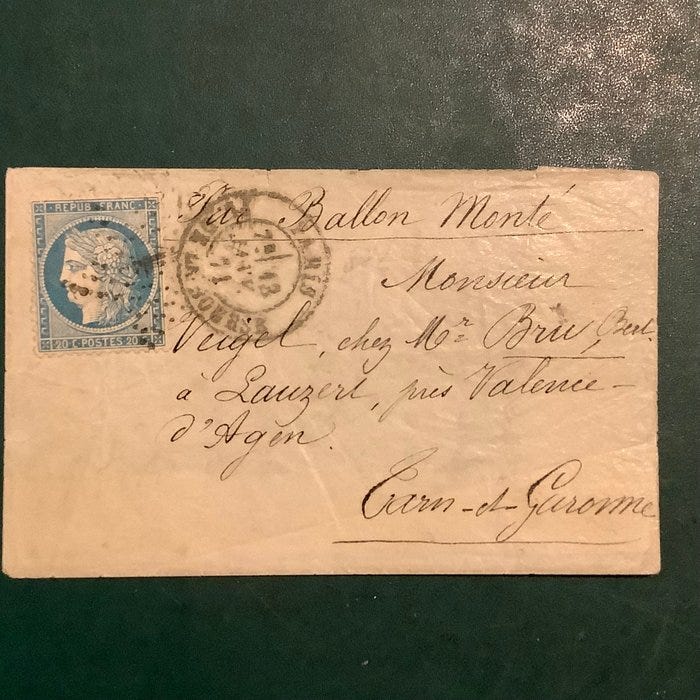 REPUB. FRANC.
20 C · POSTES 20 C
PARIS
JANV.
71
Par Ballon Monté
Monsieur
Veigel, chez Mr. Bru,
à Lauzert, près Valence-
d'Agen.
Tarn-et-Garonne